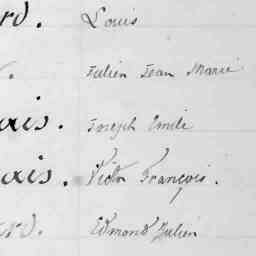 rd. Louis
. Julien Jean Marie
ais. Joseph Emile
ais. Victor François.
ard. Edmond Julien